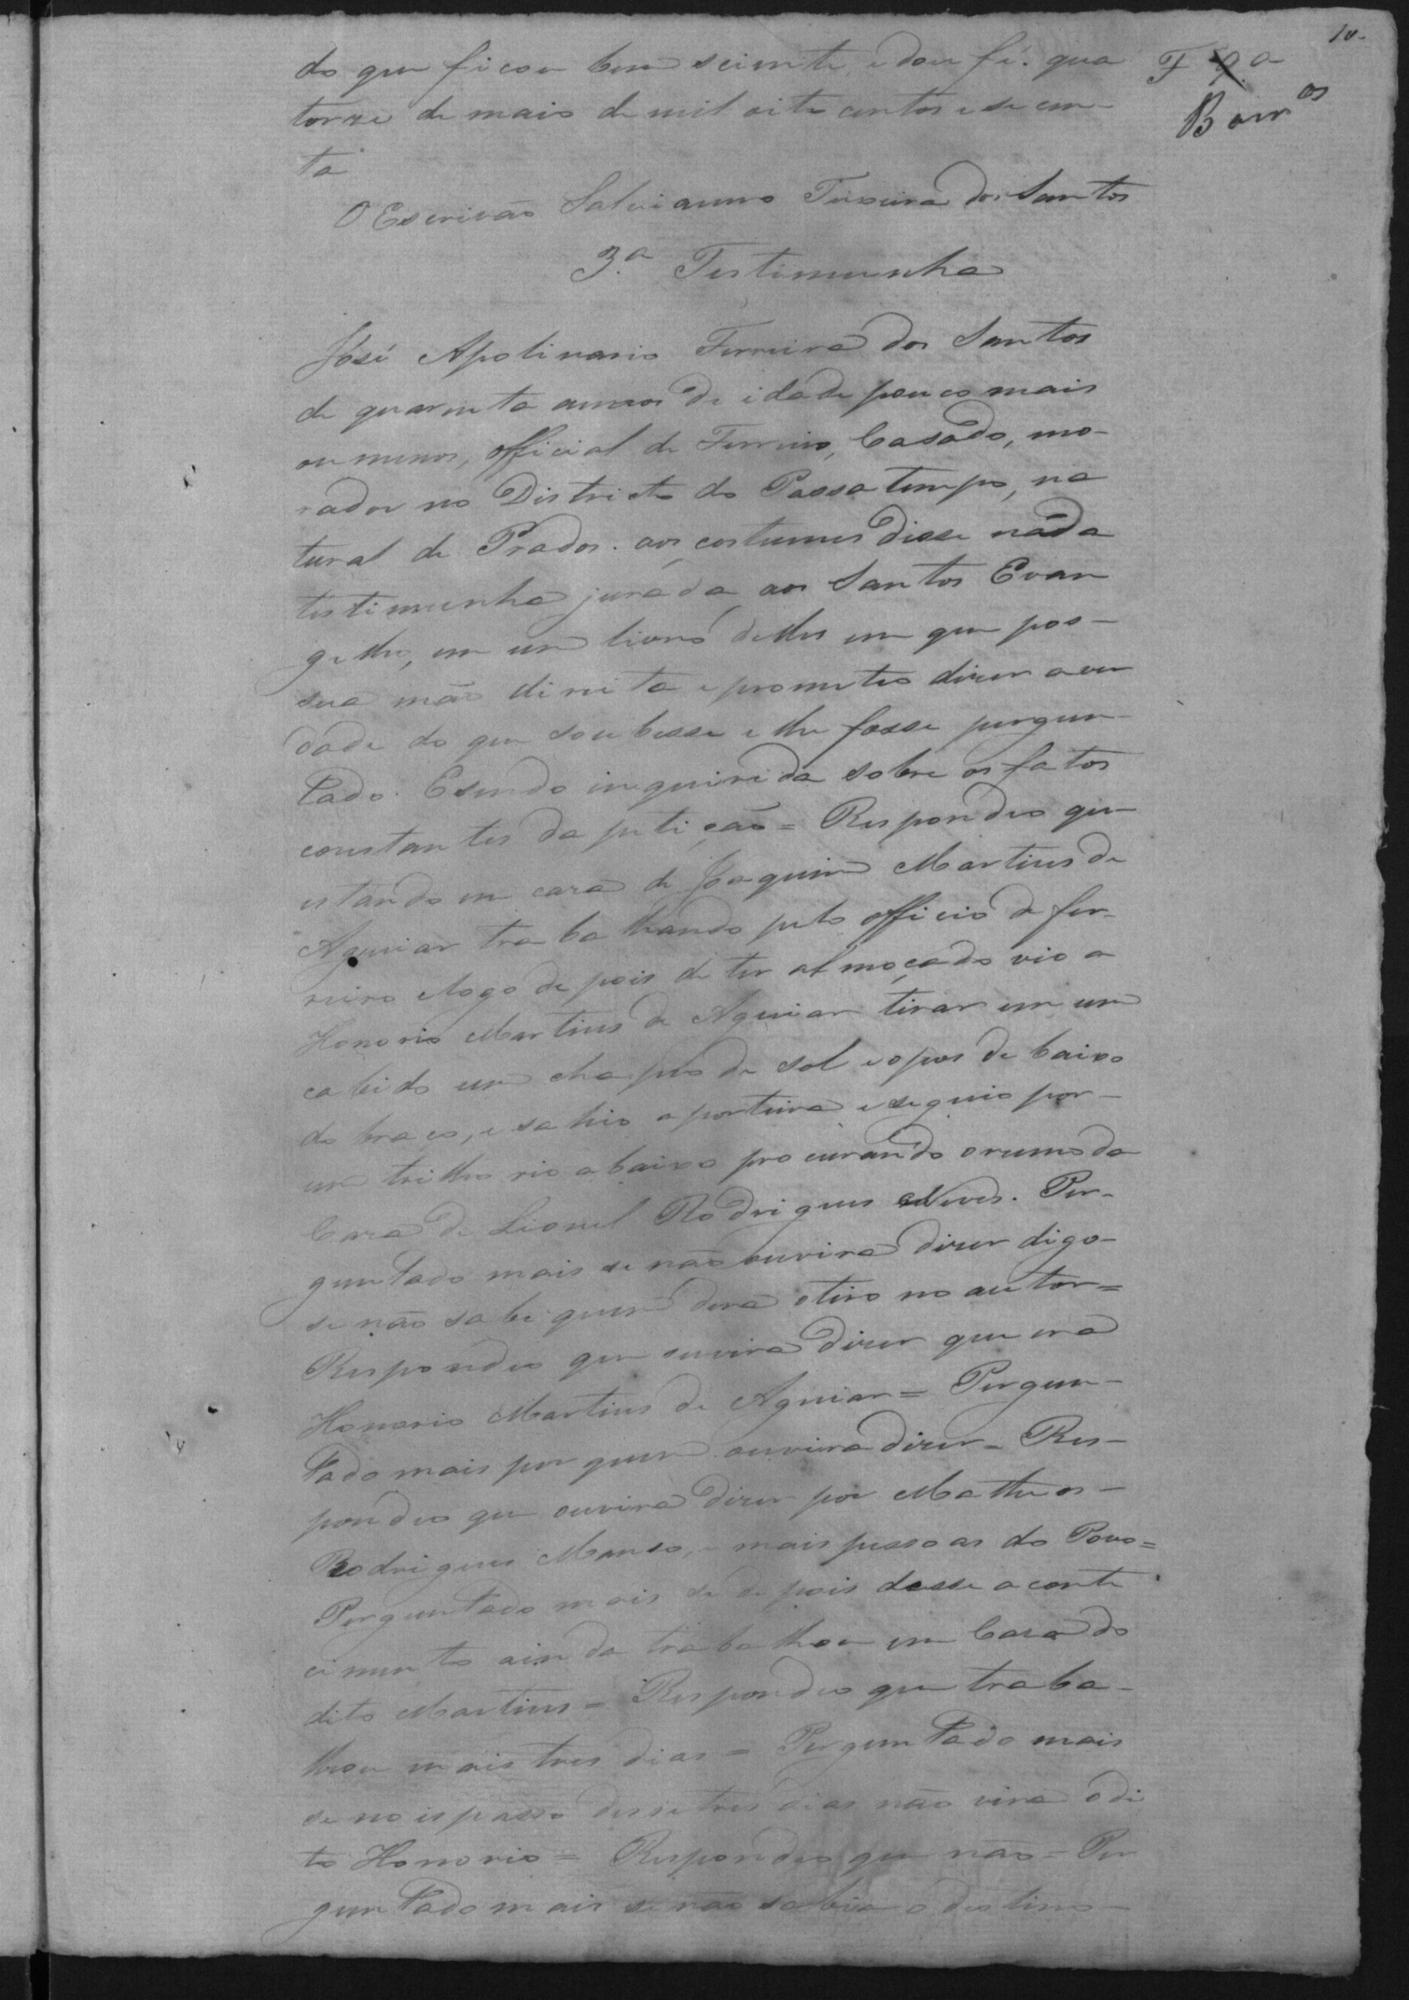 10.
F 9.a
Barr os
do que ficou bem sciente, e dou fé. qua
torze de maio de mil oito centos e secen-
ta
O Escrivão Salvianno Teixeira dos Santos
3.a Testimunha
José Apolinario Ferreira dos Santos
de quarenta annos de idade pouco mais
ou menos, official de Ferreiro, Casado, mo-
rador no Districto do Passatempo, na
tural de Prados. aos costumes disse nada
testimunha jurada aos Santos Evan
gelho, em um livro delles em que pos-
sua mão direita e prometeo dizer a ver
dade do que soubesse e lhe fosse pergun-
tado. Esendo inquirida sobre os fatos
constantes da petição = Respondeo que
estando em caza de Joaquim Martins de
Aguiar trabalhando pelo officio de fer-
reiro e logo depois de ter almoçado vio a
Honorio Martins de Aguiar tirar em um
cabido um chapeo de sol e o pos debaixo
do braço, e sahio a porteira e seguio por-
um trilho rio abaixo procurando o rumo da
Caza de Lionel Rodrigues Neves. Per-
guntado mais se não ouvira dizer digo-
se não sabe quem dera o tiro no autor =
Respondeo que ouvira dizer que era
Honorio Martins de Aguiar = Pergun-
tado mais por quem ouvira dizer = Res-
pondeo que ouvira dizer por Matheos-
Rodrigues Manso, e mais pessoas do Povo =
Perguntado mais se depois desse aconte
cimento ainda trabalhou em Caza do
dito Martins = Respondeo que traba-
lhou mais tres dias = Perguntado mais
se no ispasso desse tres dias não vira o di
to Honorio = Respondeo que não = Per
guntado mais se não sabia o destino-